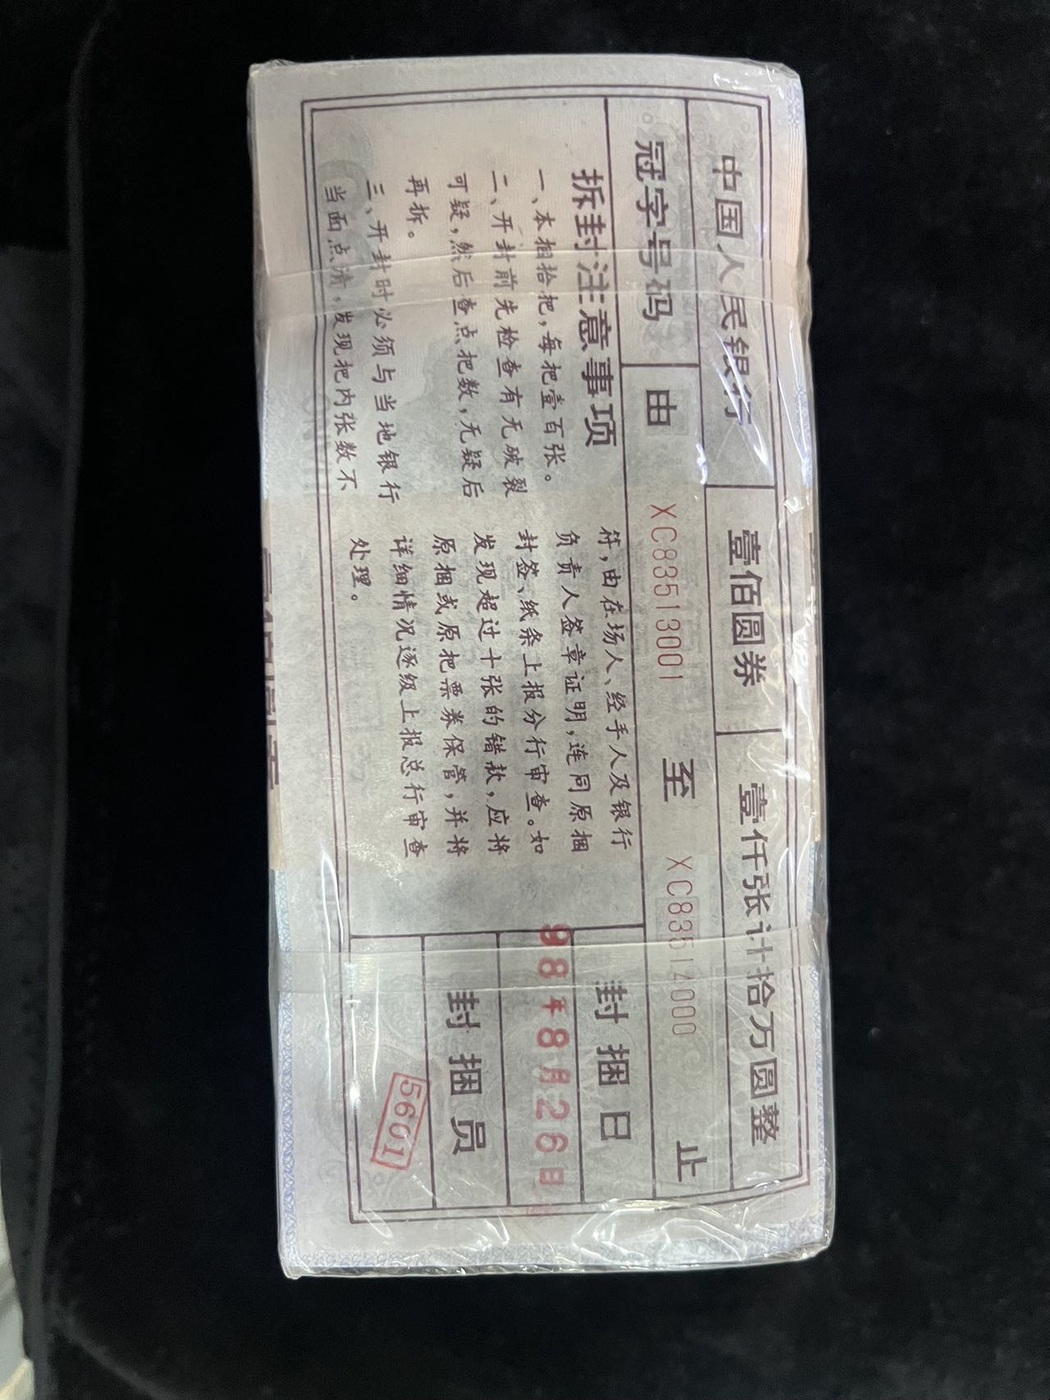 中国人民银行 壹佰圆券 壹仟张计拾万圆整
冠字号码 由 XC8351300１ 至 XC83514000 止
拆封注意事项
一、本捆拾把,每把壹百张。
二、开封前先检查有无破裂
可疑,然后查点把数,无疑后
再拆。
三、开封时必须与当地银行
当面点清,发现把内张数不
符,由在场人、经手人及银行
负责人签章证明,连同原捆
封签、纸条上报分行审查。如
发现超过十张的错款,应将
原捆或原把票券保管,并将
详细情况逐级上报总行审查
处理。
封捆日
98年8月26日
封捆员
5601